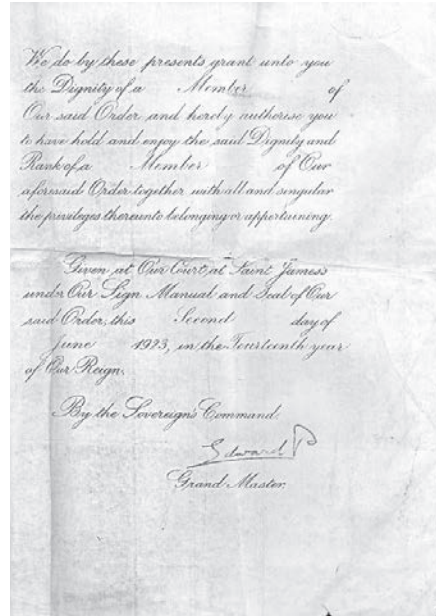 We do by these presents grant unto you
the Dignity of a Member of
Our said Order and hereby authorise you
to have hold and enjoy the said Dignity and
Rank of a Member of Our
aforesaid Order together with all and singular
the privileges thereunto belonging or appertaining.
Given at Our Court at Saint James's
under Our Sign Manual and Seal of Our
said Order, this Second day of
June 1923, in the Fourteenth year
of Our Reign.
By the Sovereign's Command.
Edward P
Grand Master.